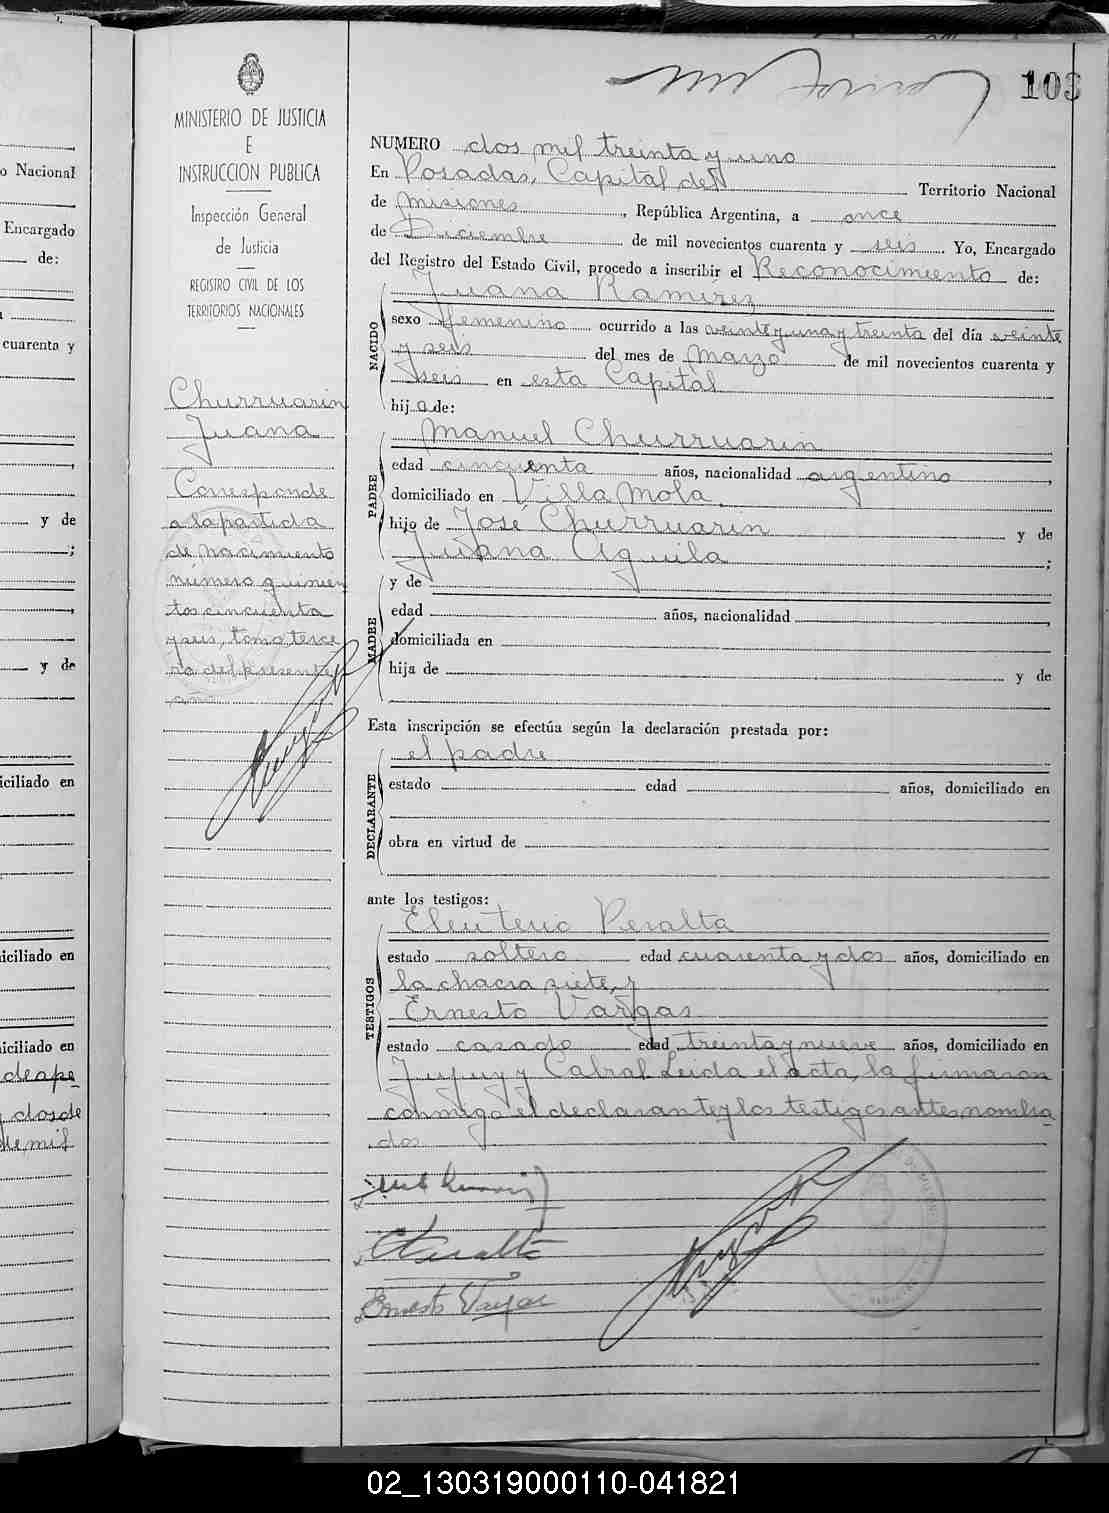 103
MINISTERIO DE JUSTICIA
E
INSTRUCCION PUBLICA
Inspección General
de Justicia
REGISTRO CIVIL DE LOS
TERRITORIOS NACIONALES
Churruarin
Juana
Corresponde
a la partida
de nacimiento
número quinien
tos cincuenta
y seis, tomo terce
ro del presente
año
NUMERO dos mil treinta y uno
En Posadas, Capital del Territorio Nacional
de Misiones, República Argentina, a once
de Diciembre de mil novecientos cuarenta y seis. Yo, Encargado
del Registro del Estado Civil, procedo a inscribir el Reconocimiento de:
Juana Ramírez
NACIDO
sexo femenino ocurrido a las veinte y una y treinta del día veinte
y seis del mes de Marzo de mil novecientos cuarenta y
seis en esta Capital
hija de:
PADRE
Manuel Churruarin
edad cincuenta años, nacionalidad argentino,
domiciliado en Villa Mola,
hijo de José Churruarin y de
Juana Aguila;
MADRE
y de
edad años, nacionalidad,
domiciliada en
hija de y de
Esta inscripción se efectúa según la declaración prestada por:
DECLARANTE
el padre
estado edad años, domiciliado en
obra en virtud de
ante los testigos:
TESTIGOS
Eleuterio Peralta
estado soltero edad cuarenta y dos años, domiciliado en
la chacra siete, y
Ernesto Vargas
estado casado edad treinta y nueve años, domiciliado en
Jujuy y Cabral. Leida el acta, la firmaron
conmigo el declarante y los testigos antes nombra
dos
EPeralta
Ernesto Vargas
o Nacional
Encargado
de:
cuarenta y
y de
y de
iciliado en
iciliado en
iciliado en
de ape
y dos de
de mil
02_130319000110-041821